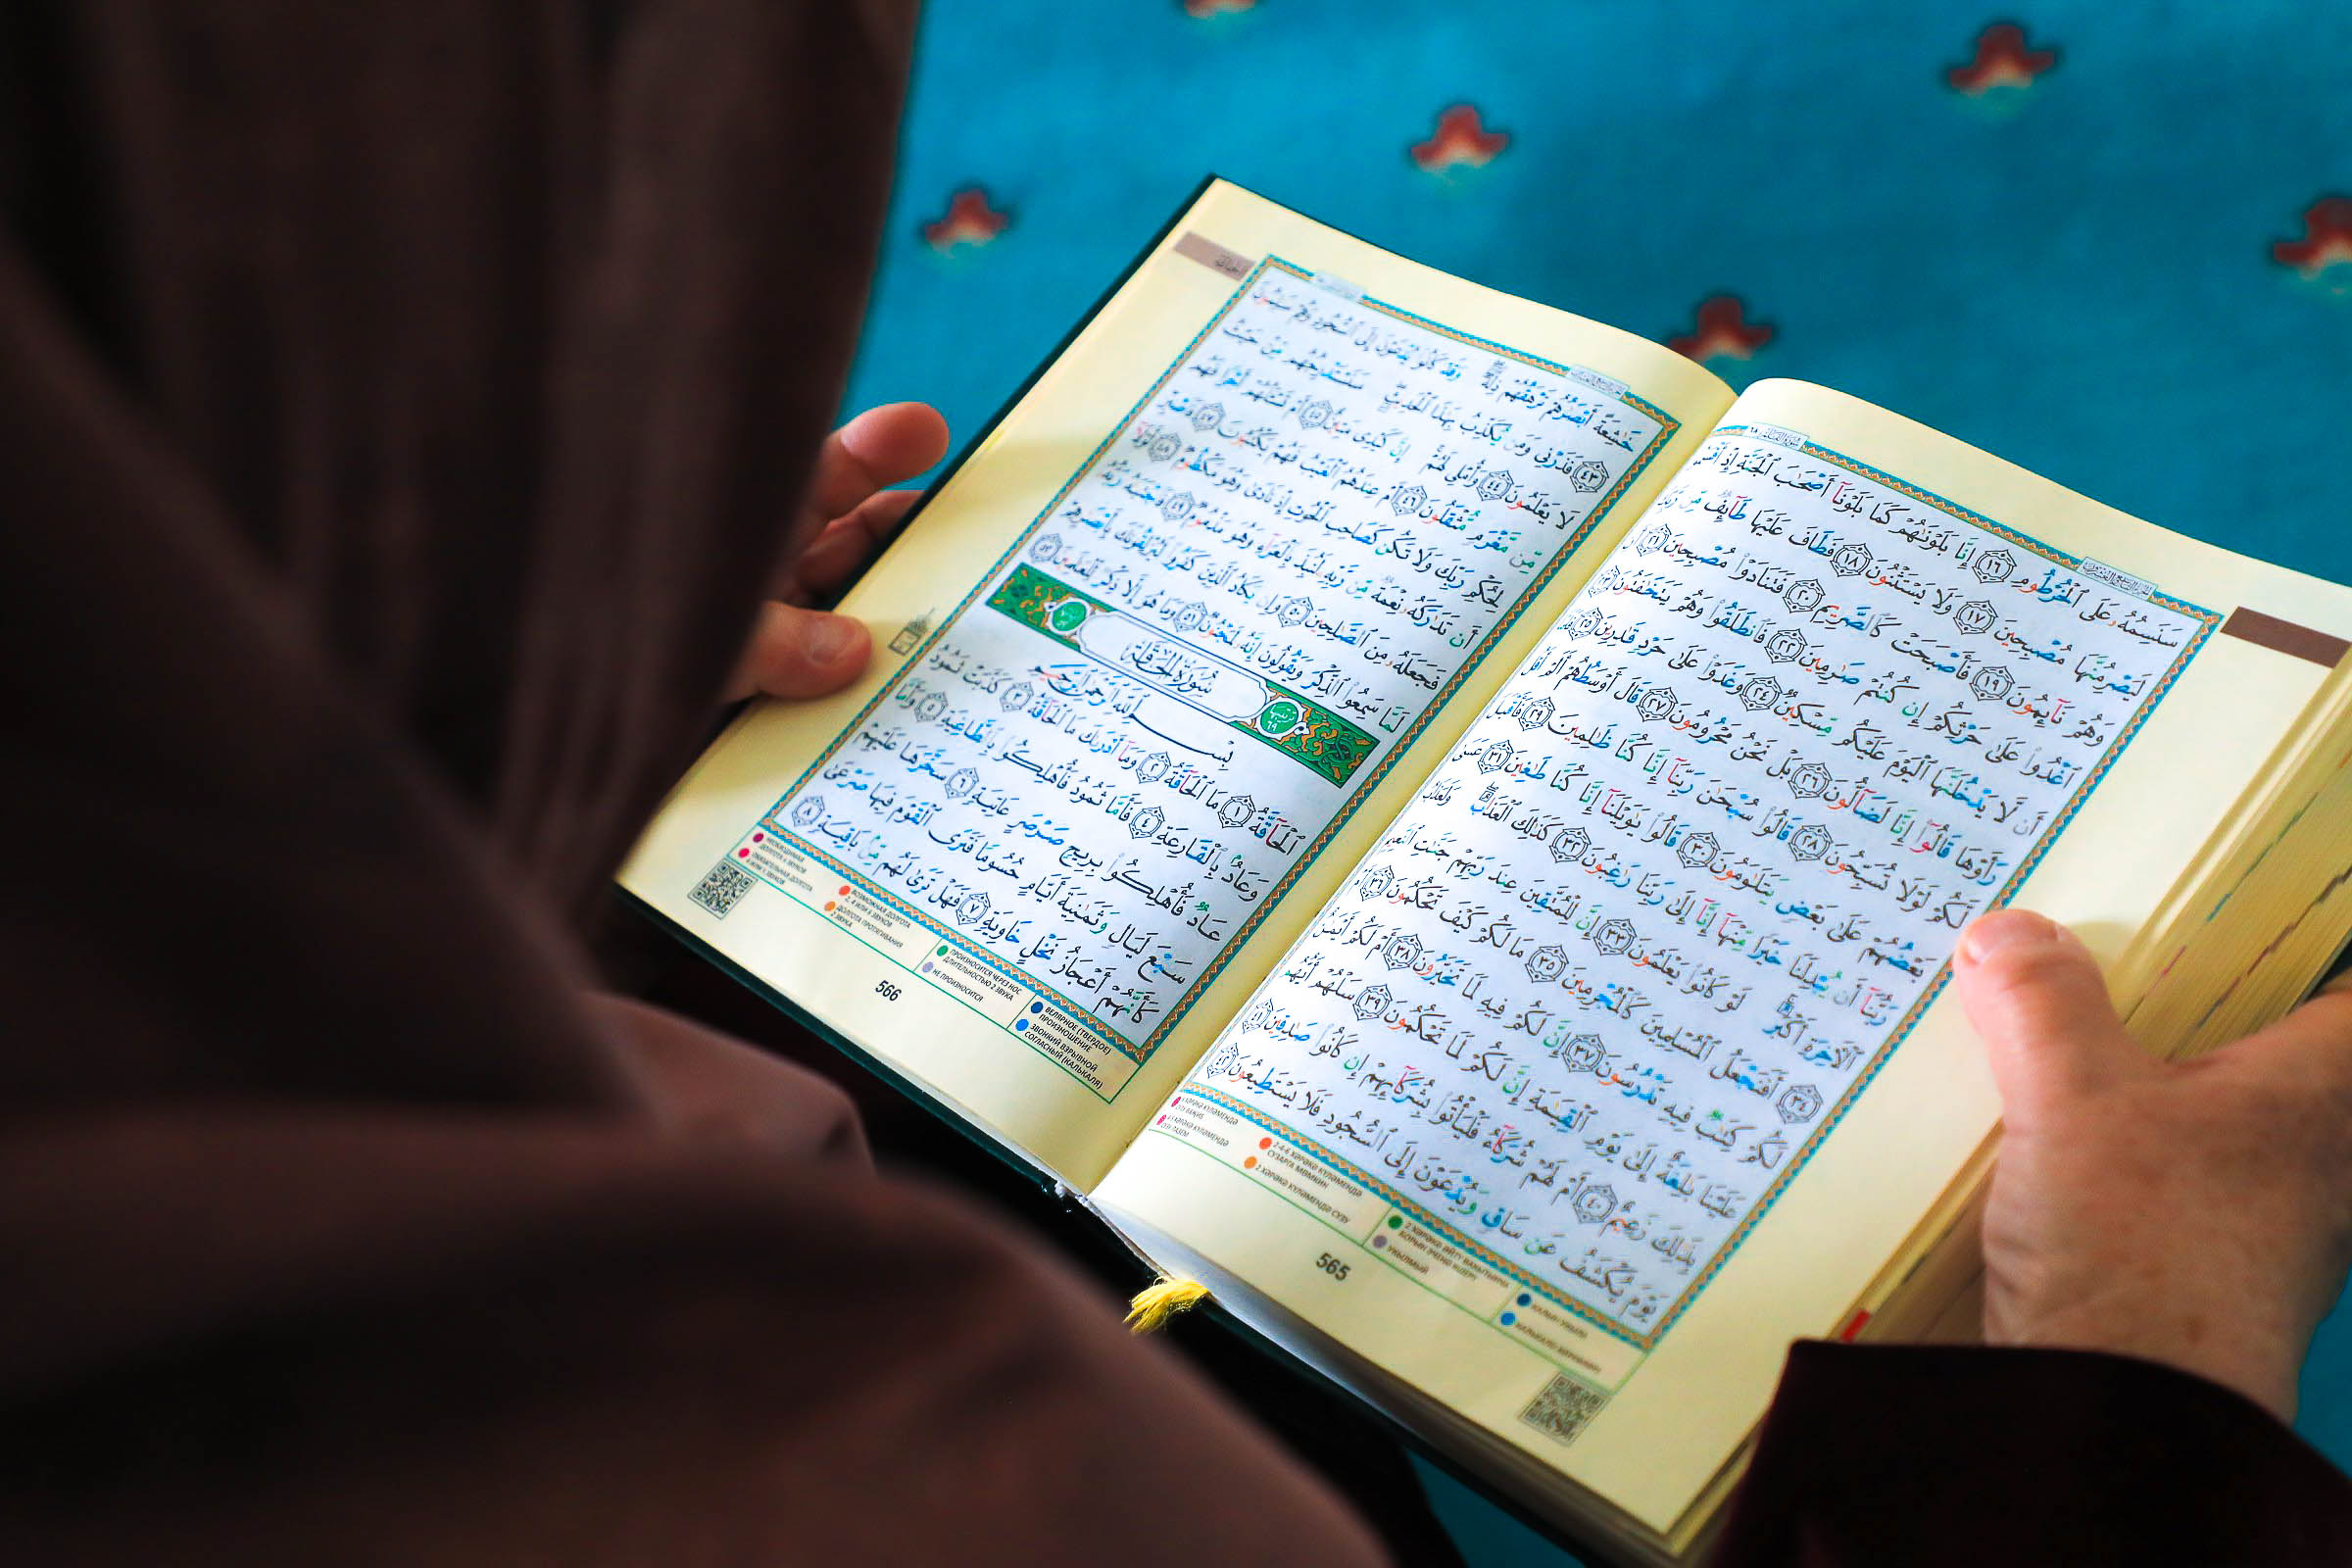 سَنَسِمُهُۥ عَلَى ٱلْخُرْطُومِ ١٦ إِنَّا بَلَوْنَٰهُمْ كَمَا بَلَوْنَآ أَصْحَٰبَ ٱلْجَنَّةِ إِذْ
لَيَصْرِمُنَّهَا مُصْبِحِينَ ١٧ وَلَا يَسْتَثْنُونَ ١٨ فَطَافَ عَلَيْهَا طَآئِفٌ مِّن رَّبِّكَ
وَهُمْ نَآئِمُونَ ١٩ فَأَصْبَحَتْ كَٱلصَّرِيمِ ٢٠ فَتَنَادَوْا۟ مُصْبِحِينَ ٢١
ٱغْدُوا۟ عَلَىٰ حَرْثِكُمْ إِن كُنتُمْ صَٰرِمِينَ ٢٢ فَٱنطَلَقُوا۟ وَهُمْ يَتَخَٰفَتُونَ ٢٣
أَن لَّا يَدْخُلَنَّهَا ٱلْيَوْمَ عَلَيْكُم مِّسْكِينٌ ٢٤ وَغَدَوْا۟ عَلَىٰ حَرْدٍ قَٰدِرِينَ ٢٥
رَأَوْهَا قَالُوٓا۟ إِنَّا لَضَآلُّونَ ٢٦ بَلْ نَحْنُ مَحْرُومُونَ ٢٧ قَالَ أَوْسَطُهُمْ أَلَمْ أَقُل
لَّكُمْ لَوْلَا تُسَبِّحُونَ ٢٨ قَالُوا۟ سُبْحَٰنَ رَبِّنَآ إِنَّا كُنَّا ظَٰلِمِينَ ٢٩ فَأَقْبَلَ
بَعْضُهُمْ عَلَىٰ بَعْضٍ يَتَلَٰوَمُونَ ٣٠ قَالُوا۟ يَٰوَيْلَنَآ إِنَّا كُنَّا طَٰغِينَ ٣١ عَسَىٰ
رَبُّنَآ أَن يُبْدِلَنَا خَيْرًا مِّنْهَآ إِنَّآ إِلَىٰ رَبِّنَا رَٰغِبُونَ ٣٢ كَذَٰلِكَ ٱلْعَذَابُ وَلَعَذَابُ
ٱلْءَاخِرَةِ أَكْبَرُ لَوْ كَانُوا۟ يَعْلَمُونَ ٣٣ إِنَّ لِلْمُتَّقِينَ عِندَ رَبِّهِمْ جَنَّٰتِ ٱلنَّعِيمِ
٣٤ أَفَنَجْعَلُ ٱلْمُسْلِمِينَ كَٱلْمُجْرِمِينَ ٣٥ مَا لَكُمْ كَيْفَ تَحْكُمُونَ ٣٦ أَمْ
لَكُمْ كِتَٰبٌ فِيهِ تَدْرُسُونَ ٣٧ إِنَّ لَكُمْ فِيهِ لَمَا تَخَيَّرُونَ ٣٨ أَمْ لَكُمْ أَيْمَٰنٌ
عَلَيْنَا بَٰلِغَةٌ إِلَىٰ يَوْمِ ٱلْقِيَٰمَةِ إِنَّ لَكُمْ لَمَا تَحْكُمُونَ ٣٩ سَلْهُمْ أَيُّهُم
بِذَٰلِكَ زَعِيمٌ ٤٠ أَمْ لَهُمْ شُرَكَآءُ فَلْيَأْتُوا۟ بِشُرَكَآئِهِمْ إِن كَانُوا۟ صَٰدِقِينَ ٤١
يَوْمَ يُكْشَفُ عَن سَاقٍ وَيُدْعَوْنَ إِلَى ٱلسُّجُودِ فَلَا يَسْتَطِيعُونَ ٤٢
2-4-6 ХӘРӘКӘ КҮЛӘМЕНДӘ
СУЗАРГА МӨМКИН
2 ХӘРӘКӘ КҮЛӘМЕНДӘ СУЗУ
УКЫЛМЫЙ
565
خَٰشِعَةً أَبْصَٰرُهُمْ تَرْهَقُهُمْ ذِلَّةٌ وَقَدْ كَانُوا۟ يُدْعَوْنَ إِلَى ٱلسُّجُودِ وَهُمْ سَٰلِمُونَ
٤٣ فَذَرْنِى وَمَن يُكَذِّبُ بِهَٰذَا ٱلْحَدِيثِ سَنَسْتَدْرِجُهُم مِّنْ حَيْثُ
لَا يَعْلَمُونَ ٤٤ وَأُمْلِى لَهُمْ إِنَّ كَيْدِى مَتِينٌ ٤٥ أَمْ تَسْـَٔلُهُمْ أَجْرًا فَهُم
مِّن مَّغْرَمٍ مُّثْقَلُونَ ٤٦ أَمْ عِندَهُمُ ٱلْغَيْبُ فَهُمْ يَكْتُبُونَ ٤٧ فَٱصْبِرْ
لِحُكْمِ رَبِّكَ وَلَا تَكُن كَصَاحِبِ ٱلْحُوتِ إِذْ نَادَىٰ وَهُوَ مَكْظُومٌ ٤٨ لَّوْلَآ
أَن تَدَٰرَكَهُۥ نِعْمَةٌ مِّن رَّبِّهِۦ لَنُبِذَ بِٱلْعَرَآءِ وَهُوَ مَذْمُومٌ ٤٩ فَٱجْتَبَٰهُ رَبُّهُۥ
فَجَعَلَهُۥ مِنَ ٱلصَّٰلِحِينَ ٥٠ وَإِن يَكَادُ ٱلَّذِينَ كَفَرُوا۟ لَيُزْلِقُونَكَ بِأَبْصَٰرِهِمْ
لَمَّا سَمِعُوا۟ ٱلذِّكْرَ وَيَقُولُونَ إِنَّهُۥ لَمَجْنُونٌ ٥١ وَمَا هُوَ إِلَّا ذِكْرٌ لِّلْعَٰلَمِينَ ٥٢
سُورَةُ الْحَاقَّةِ
بِسْمِ ٱللَّهِ ٱلرَّحْمَٰنِ ٱلرَّحِيمِ
ٱلْحَآقَّةُ ١ مَا ٱلْحَآقَّةُ ٢ وَمَآ أَدْرَىٰكَ مَا ٱلْحَآقَّةُ ٣ كَذَّبَتْ ثَمُودُ
وَعَادٌۢ بِٱلْقَارِعَةِ ٤ فَأَمَّا ثَمُودُ فَأُهْلِكُوا۟ بِٱلطَّاغِيَةِ ٥ وَأَمَّا
عَادٌ فَأُهْلِكُوا۟ بِرِيحٍ صَرْصَرٍ عَاتِيَةٍ ٦ سَخَّرَهَا عَلَيْهِمْ
سَبْعَ لَيَالٍ وَثَمَٰنِيَةَ أَيَّامٍ حُسُومًا فَتَرَى ٱلْقَوْمَ فِيهَا صَرْعَىٰ
كَأَنَّهُمْ أَعْجَازُ نَخْلٍ خَاوِيَةٍ ٧ فَهَلْ تَرَىٰ لَهُم مِّنۢ بَاقِيَةٍ ٨
ВОЗМОЖНАЯ ДОЛГОТА
2, 4 ИЛИ 6 ЗВУКОВ
ДОЛГОТА ПРОТЯГИВАНИЯ
2 ЗВУКА
ПРОИЗНОСИТСЯ ЧЕРЕЗ НОС
ДЛИТЕЛЬНОСТЬЮ 2 ЗВУКА
НЕ ПРОИЗНОСИТСЯ
ВЕЛЯРНОЕ (ТВЕРДОЕ)
ПРОИЗНОШЕНИЕ
ЗВОНКИЙ ВЗРЫВНОЙ
СОГЛАСНЫЙ (КАЛЬКАЛЯ)
566